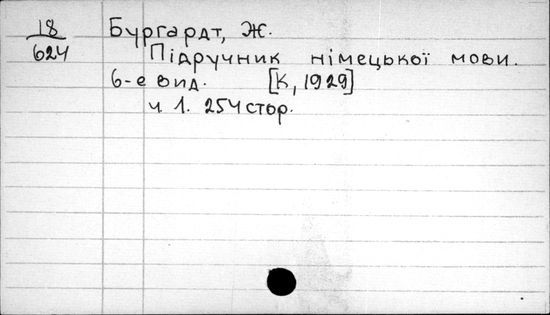 18
624
Бургардт, Ж.
Підручник німецької мови.
6-е вид. [К, 1929]
ч 1. 254 стор.